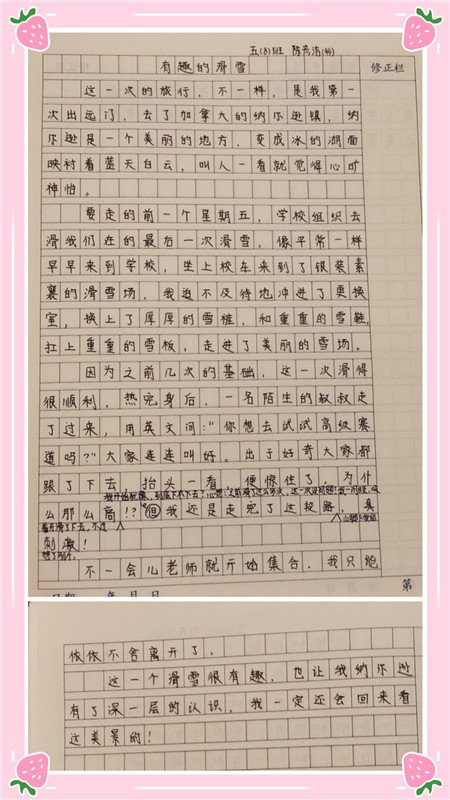 五(8)班
有趣的滑雪
修正栏
这一次的旅行，不一样，是我第一
次出远门，去了加拿大的纳尔逊镇，纳
尔逊是一个美丽的地方，变成冰的湖面
映衬着蓝天白云，叫人一看就觉得心旷
神怡。
要走的前一个星期五，学校组织去
滑我们在的最后一次滑雪，像平常一样
早早来到学校，坐上校车来到了银装素
裹的滑雪场，我迫不及待地冲进了更换
室，换上了厚厚的雪裤、和重重的雪鞋，
扛上重重的雪板，走进了美丽的雪场。
因为之前几次的基础，这一次滑得
很顺利，热完身后，一名陌生的叔叔走
了过来，用英文问：“你想去试试高级赛
道吗？”大家连连叫好。出于好奇大家都
跟了下去，抬头一看，便惊住了，为什
我开始犹豫，到底下不下去？心想：
么那么高！？但我还是走完了这段路，真
刺激！
不一会儿老师就开始集合，我只能
第
年 月 日
依依不舍离开了。
这一个滑雪很有趣，也让我纳尔逊
有了深一层的认识，我一定还会回来看
这美景的！